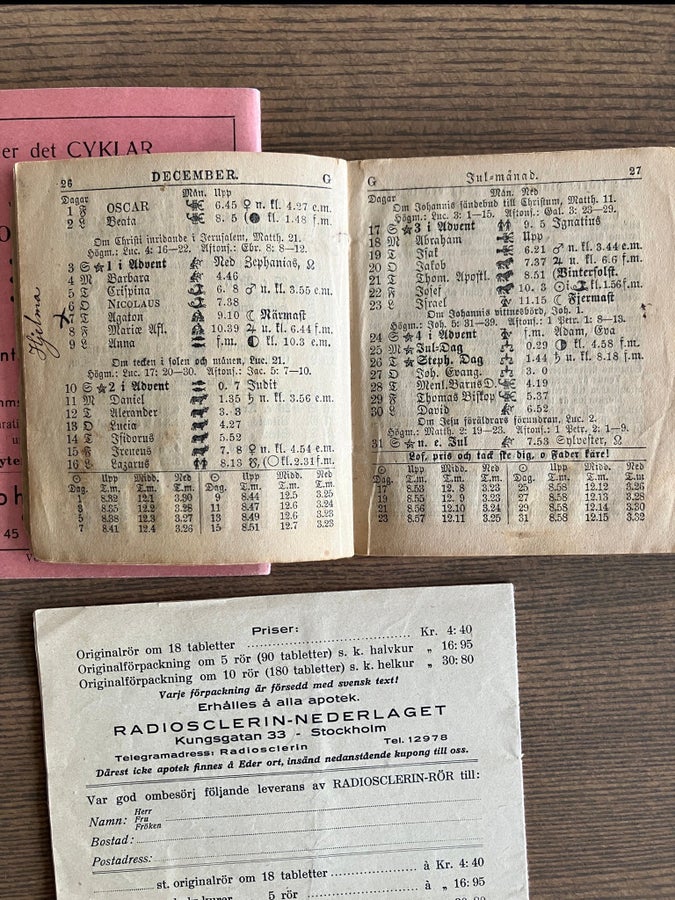 er det CYKLAR
26 DECEMBER. G
Dagar Mån. Upp
1 F OSCAR 6.45 ♀ n. kl. 4.27 e.m.
2 L Beata 8. 5 kl. 1.48 f.m.
Om Christi inridande i Jerusalem, Matth. 21.
Högm.: Luc. 4: 16—22. Aftonsj.: Ebr. 8: 8—12.
3 S 1 i Advent Ned Zephanias, ☊
4 M Barbara 4.46
5 T Crispina 6. 8 ♂ n. kl. 3.55 e.m.
6 O NICOLAUS 7.38
7 T Agaton 9.10 ☾ Närmast
8 F Mariæ Afl. 10.39 ♃ u. kl. 6.44 f.m.
9 L Anna f.m. kl. 10.3 e.m.
Hjelma
Om tecken i solen och månen, Luc. 21.
Högm.: Luc. 17: 20—30. Aftonsj.: Jac. 5: 7—10.
10 S 2 i Advent 0. 7 Judit
11 M Daniel 1.35 ♄ n. kl. 3.56 e.m.
12 T Alexander 3. 3
13 O Lucia 4.27
14 T Isidorus 5.52
15 F Ireneus 7. 8 ♃ n. kl. 4.54 e.m.
16 L Lazarus 8.13 kl. 2.31 f.m.
☉ Upp Midd. Ned ☉ Upp Midd. Ned
Dag. T.m. T.m. T.m. Dag. T.m. T.m. T.m.
1 8.32 12.1 3.30 9 8.44 12.5 3.25
3 8.35 12.2 3.28 11 8.47 12.6 3.24
5 8.38 12.3 3.27 13 8.49 12.6 3.23
7 8.41 12.4 3.26 15 8.51 12.7 3.23
G Jul-månad. 27
Dagar Mån. Ned
Om Johannis sändebud till Christum, Matth. 11.
Högm.: Luc. 3: 1—15. Aftonsj.: Gal. 3: 23—29.
17 S 3 i Advent 9. 5 Ignatius
18 M Abraham Upp
19 T Isak 6.21 ♂ n. kl. 3.44 e.m.
20 O Jakob 7.37 ♃ u. kl. 6.6 f.m.
21 T Thom. Apostl. 8.51 (Vintersolst.
22 F Josef 10. 3 kl. 1.56 f.m.
23 L Israel 11.15 ☾ Fjermast
Om Johannis vittnesbörd, Joh. 1.
Högm.: Joh. 5: 31—39. Aftonsj.: 1 Petr. 1: 8—13.
24 S 4 i Advent f.m. Adam, Eva
25 M Jul-Dag 0.29 kl. 4.58 f.m.
26 T Steph. Dag 1.44 ♄ u. kl. 8.18 f.m.
27 O Joh. Evang. 3. 1
28 T Menl. Barns D. 4.19
29 F Thomas Biskop 5.37
30 L David 6.52
Om Jesu föräldrars förundran, Luc. 2.
Högm.: Matth. 2: 19—23. Aftonsj.: 1 Petr. 2: 1—9.
31 S n. e. Jul 7.53 Sylvester, ☊
Lof, pris och tack ske dig, o Fader käre!
☉ Upp Midd. Ned ☉ Upp Midd. Ned
Dag. T.m. T.m. T.m. Dag. T.m. T.m. T.m.
17 8.53 12. 8 3.23 25 8.58 12.12 3.26
19 8.55 12. 9 3.23 27 8.58 12.13 3.28
21 8.56 12.10 3.24 29 8.58 12.14 3.30
23 8.57 12.11 3.25 31 8.58 12.15 3.32
45
Priser:
Originalrör om 18 tabletter Kr. 4: 40
Originalförpackning om 5 rör (90 tabletter) s. k. halvkur „ 16: 95
Originalförpackning om 10 rör (180 tabletter) s. k. helkur „ 30: 80
Varje förpackning är försedd med svensk text!
Erhålles å alla apotek.
RADIOSCLERIN-NEDERLAGET
Kungsgatan 33 - Stockholm
Telegramadress: Radiosclerin Tel. 12978
Därest icke apotek finnes å Eder ort, insänd nedanstående kupong till oss.
Var god ombesörj följande leverans av RADIOSCLERIN-RÖR till:
Namn: Herr Fru Fröken
Bostad:
Postadress:
st. originalrör om 18 tabletter à Kr. 4: 40
5 rör à „ 16: 95